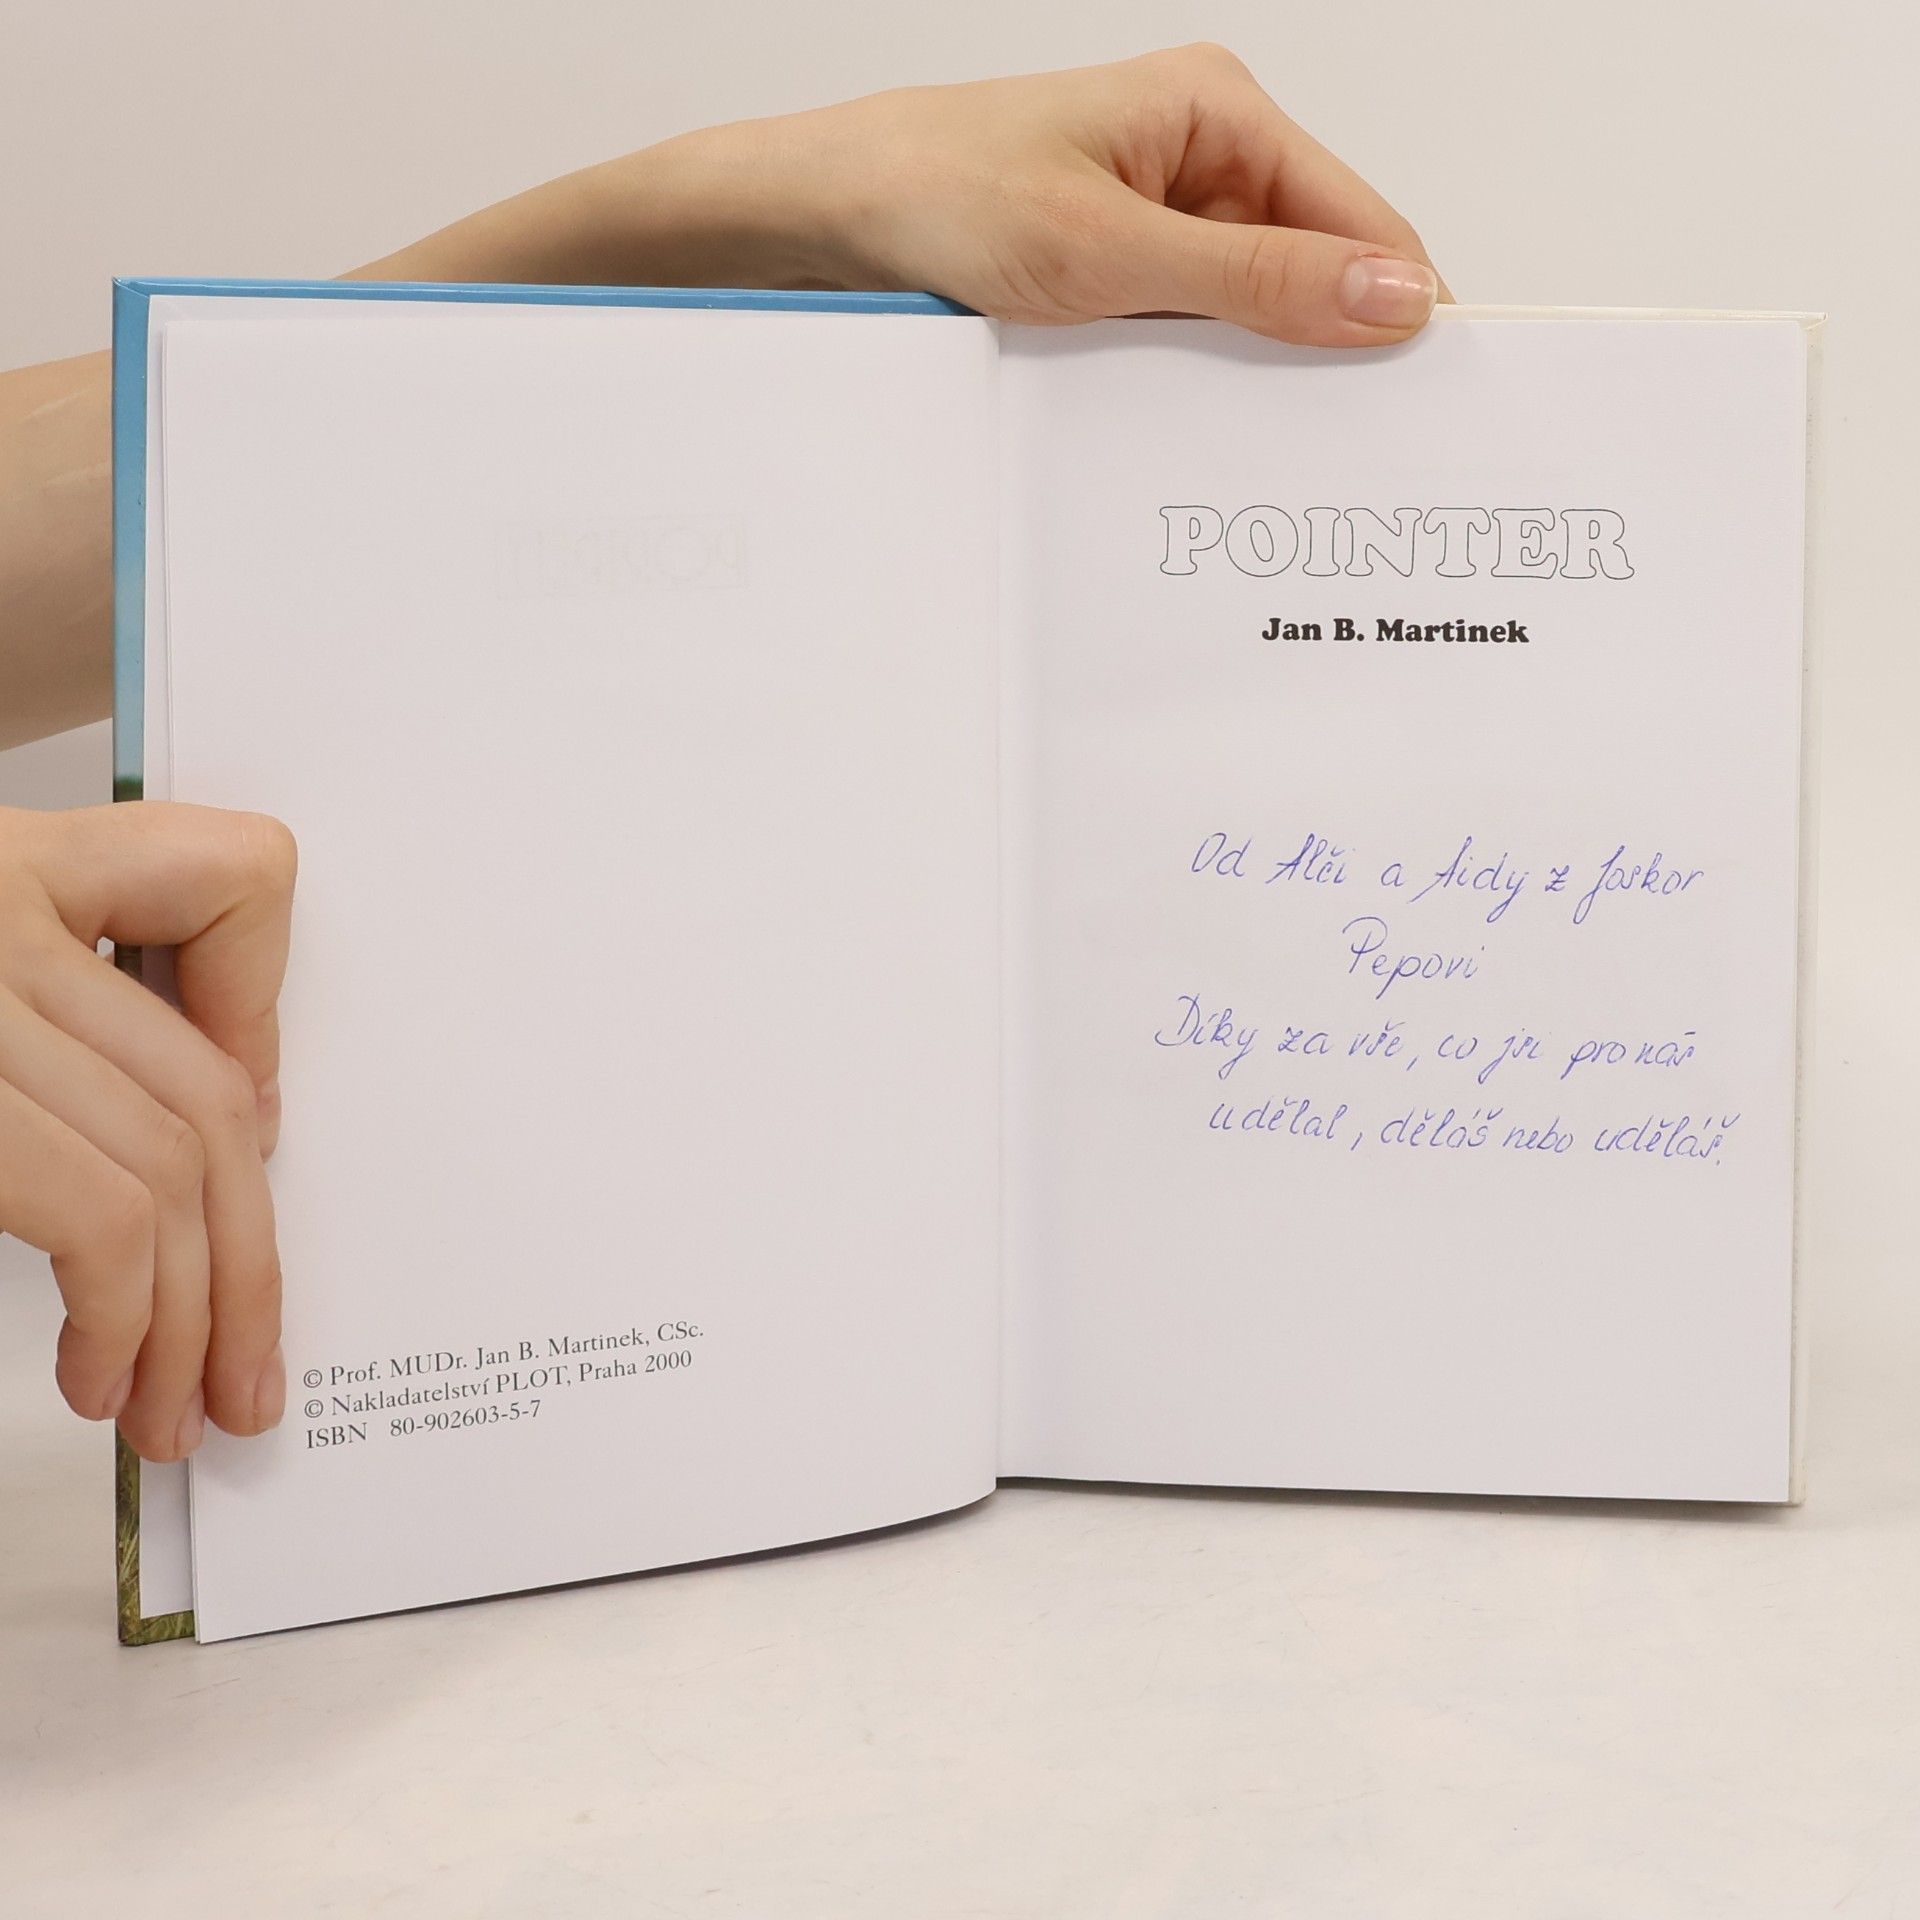 © Prof. MUDr. Jan B. Martinek, CSc.
© Nakladatelství PLOT, Praha 2000
ISBN 80-902603-5-7
POINTER
Jan B. Martinek
Od Alči a Aidy z Joskor
Pepovi
Díky za vše, co jsi pro nás
udělal, děláš nebo uděláš.